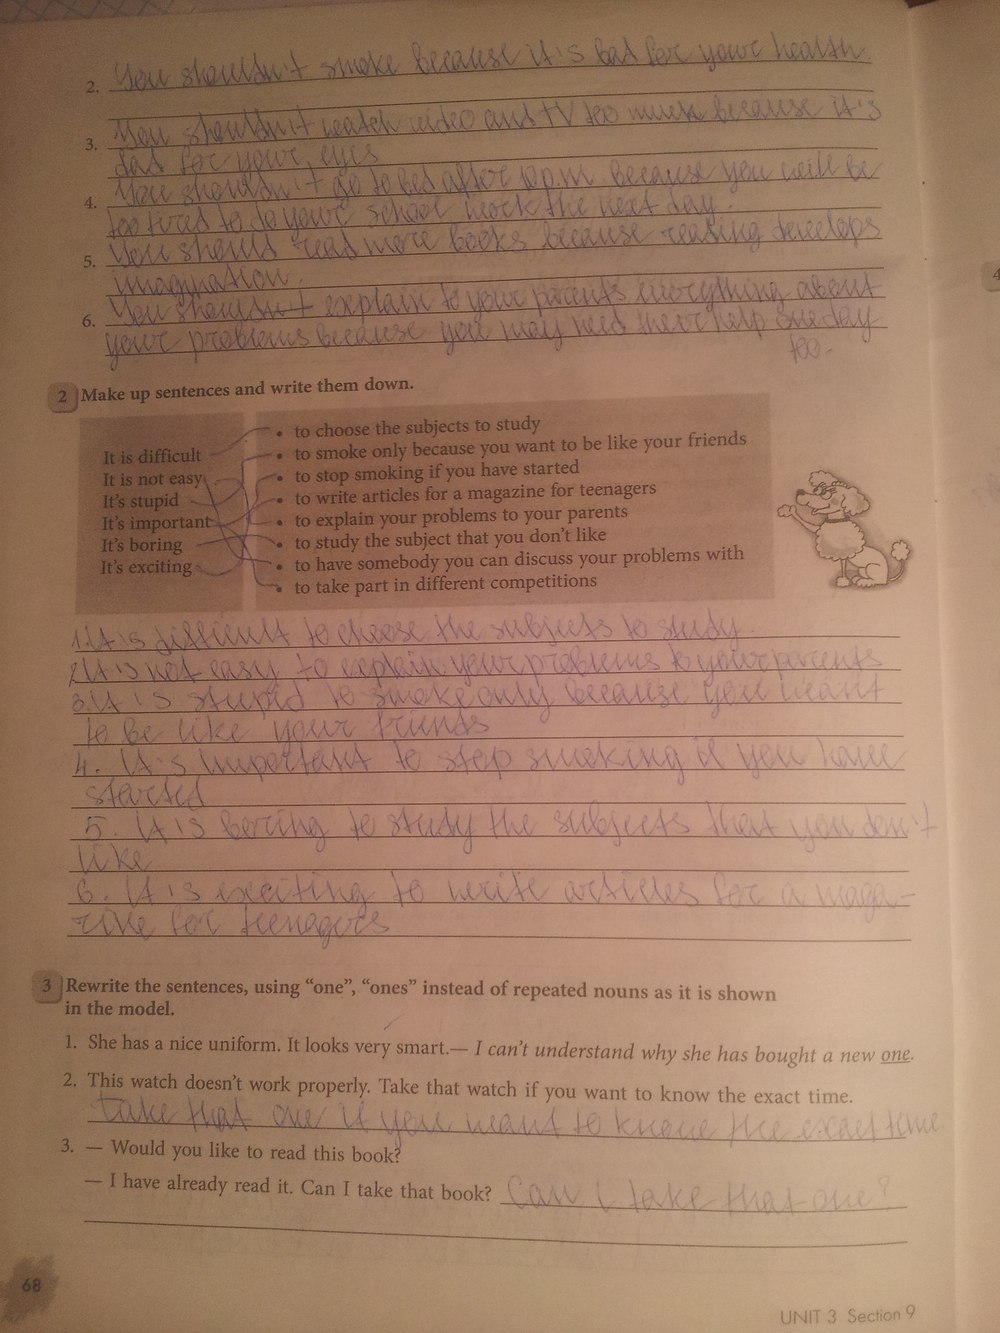 2. You shouldn't smoke because it's bad for your health.
3. You shouldn't watch video and TV too much because it's
bad for your eyes
4. You shouldn't go to bed after 10 p.m. because you will be
too tired to do your school work the next day.
5. You should read more books because reading develops
imagination.
6. You shouldn't explain to your parents everything about
your problems because you may need their help one day
too.
2 Make up sentences and write them down.
It is difficult
It is not easy
It's stupid
It's important
It's boring
It's exciting
• to choose the subjects to study
• to smoke only because you want to be like your friends
• to stop smoking if you have started
• to write articles for a magazine for teenagers
• to explain your problems to your parents
• to study the subject that you don't like
• to have somebody you can discuss your problems with
• to take part in different competitions
1. It is difficult to choose the subjects to study.
2 It is not easy to explain your problems to your parents
3. It is stupid to smoke only because you want
to be like your friends
4. It's important to stop smoking if you have
started
5. It is boring to study the subjects that you don't
like
6. It is exciting to write articles for a maga-
zine for teenagers
3 Rewrite the sentences, using “one”, “ones” instead of repeated nouns as it is shown
in the model.
1. She has a nice uniform. It looks very smart.— I can't understand why she has bought a new one.
2. This watch doesn't work properly. Take that watch if you want to know the exact time.
take that one if you want to know the exact time
3. — Would you like to read this book?
— I have already read it. Can I take that book? Can I take that one?
68
UNIT 3 Section 9
4